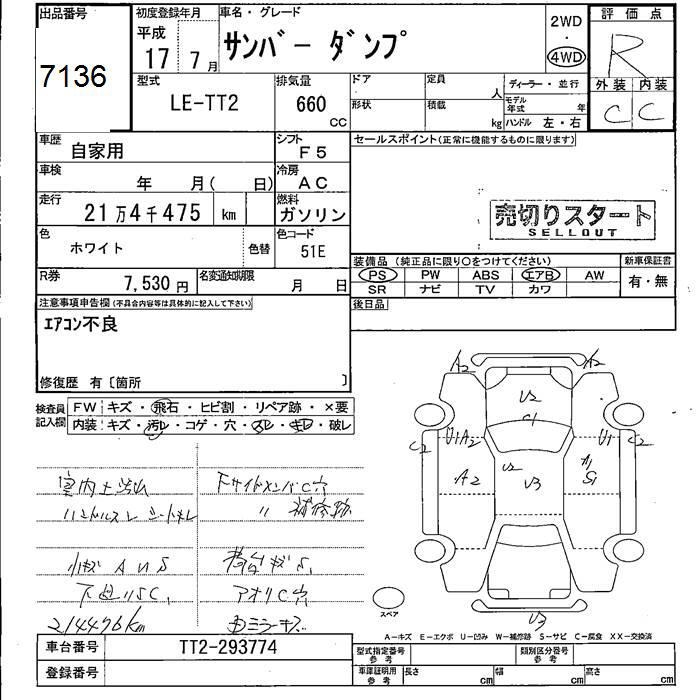 出品番号 初度登録年月 車名・グレード 2WD 評価点
7136 平成 17 7月 サンバー ダンプ ・ 4WD R
型式 排気量 ドア 定員 人 ディーラー・並行 外装 内装
LE-TT2 660 CC 形状 積載 kg モデル年式 年 ハンドル 左・右 C C
車歴 自家用 シフト F5 セールスポイント(正常に機能するものに限ります)
車検 年 月( 日) 冷房 AC
走行 21万4千475 km 燃料 ガソリン 売切りスタート
SELLOUT
色 ホワイト 色替 色コード 51E
装備品(純正品に限り○をつけてください) 新車保証書
R券 7,530円 名変通知期限 月 日 PS PW ABS エアB AW 有・無
SR ナビ TV カワ
注意事項申告欄(不具合内容等は具体的に記入して下さい) 後日品
エアコン不良
修復歴 有〔箇所 〕
検査員記入欄 FW キズ・飛石・ヒビ割・リペア跡・×要
内装 キズ・汚レ・コゲ・穴・スレ・キレ・破レ
A2 A2
U2
C1
C2 U1 A2 U1 C2
A2 U2 U3 A1 S1
室内土汚レ FサイドメンバC穴
ハンドルスレ シートキレ 〃 補修跡
小キズAUS 荷台キズS
下廻りSC アオリC穴
214476km
U3
スペア
A-キズ E-エクボ U-凹み W-補修跡 S-サビ C-腐食 XX-交換済
車台番号 TT2-293774 型式指定番号 参考 類別区分番号 参考
登録番号 車庫証明用 参考 長さ cm 幅 cm 高さ cm